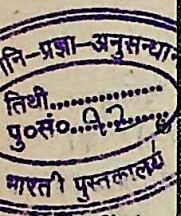 नि-प्रज्ञा-अनुसन्धान
तिथी..................
पु०सं०
भारती पुस्तकालय